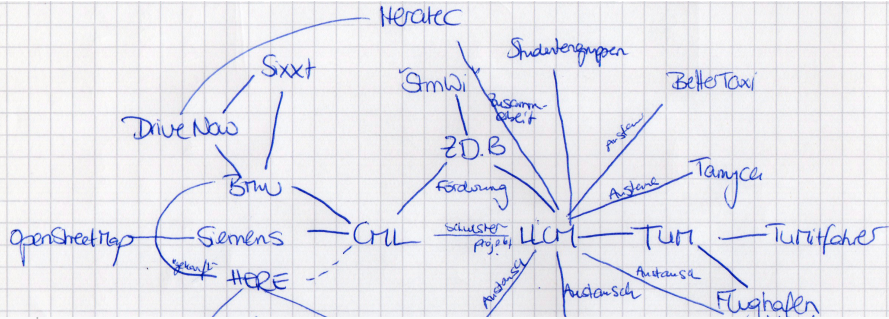 Heratec
Studentengruppen
Sixxt
StmWi
BetterTaxi
Zusamm-
arbeit
DriveNow
Austausch
ZD.B
Tamyca
BMW
Förderung
Austausch
OpenStreetMap
Siemens
CML
Schuster
projekt
LLCM
TUM
TUMitfahrer
"gekauft"
HERE
Austausch
Austausch
Austausch
Flughafen